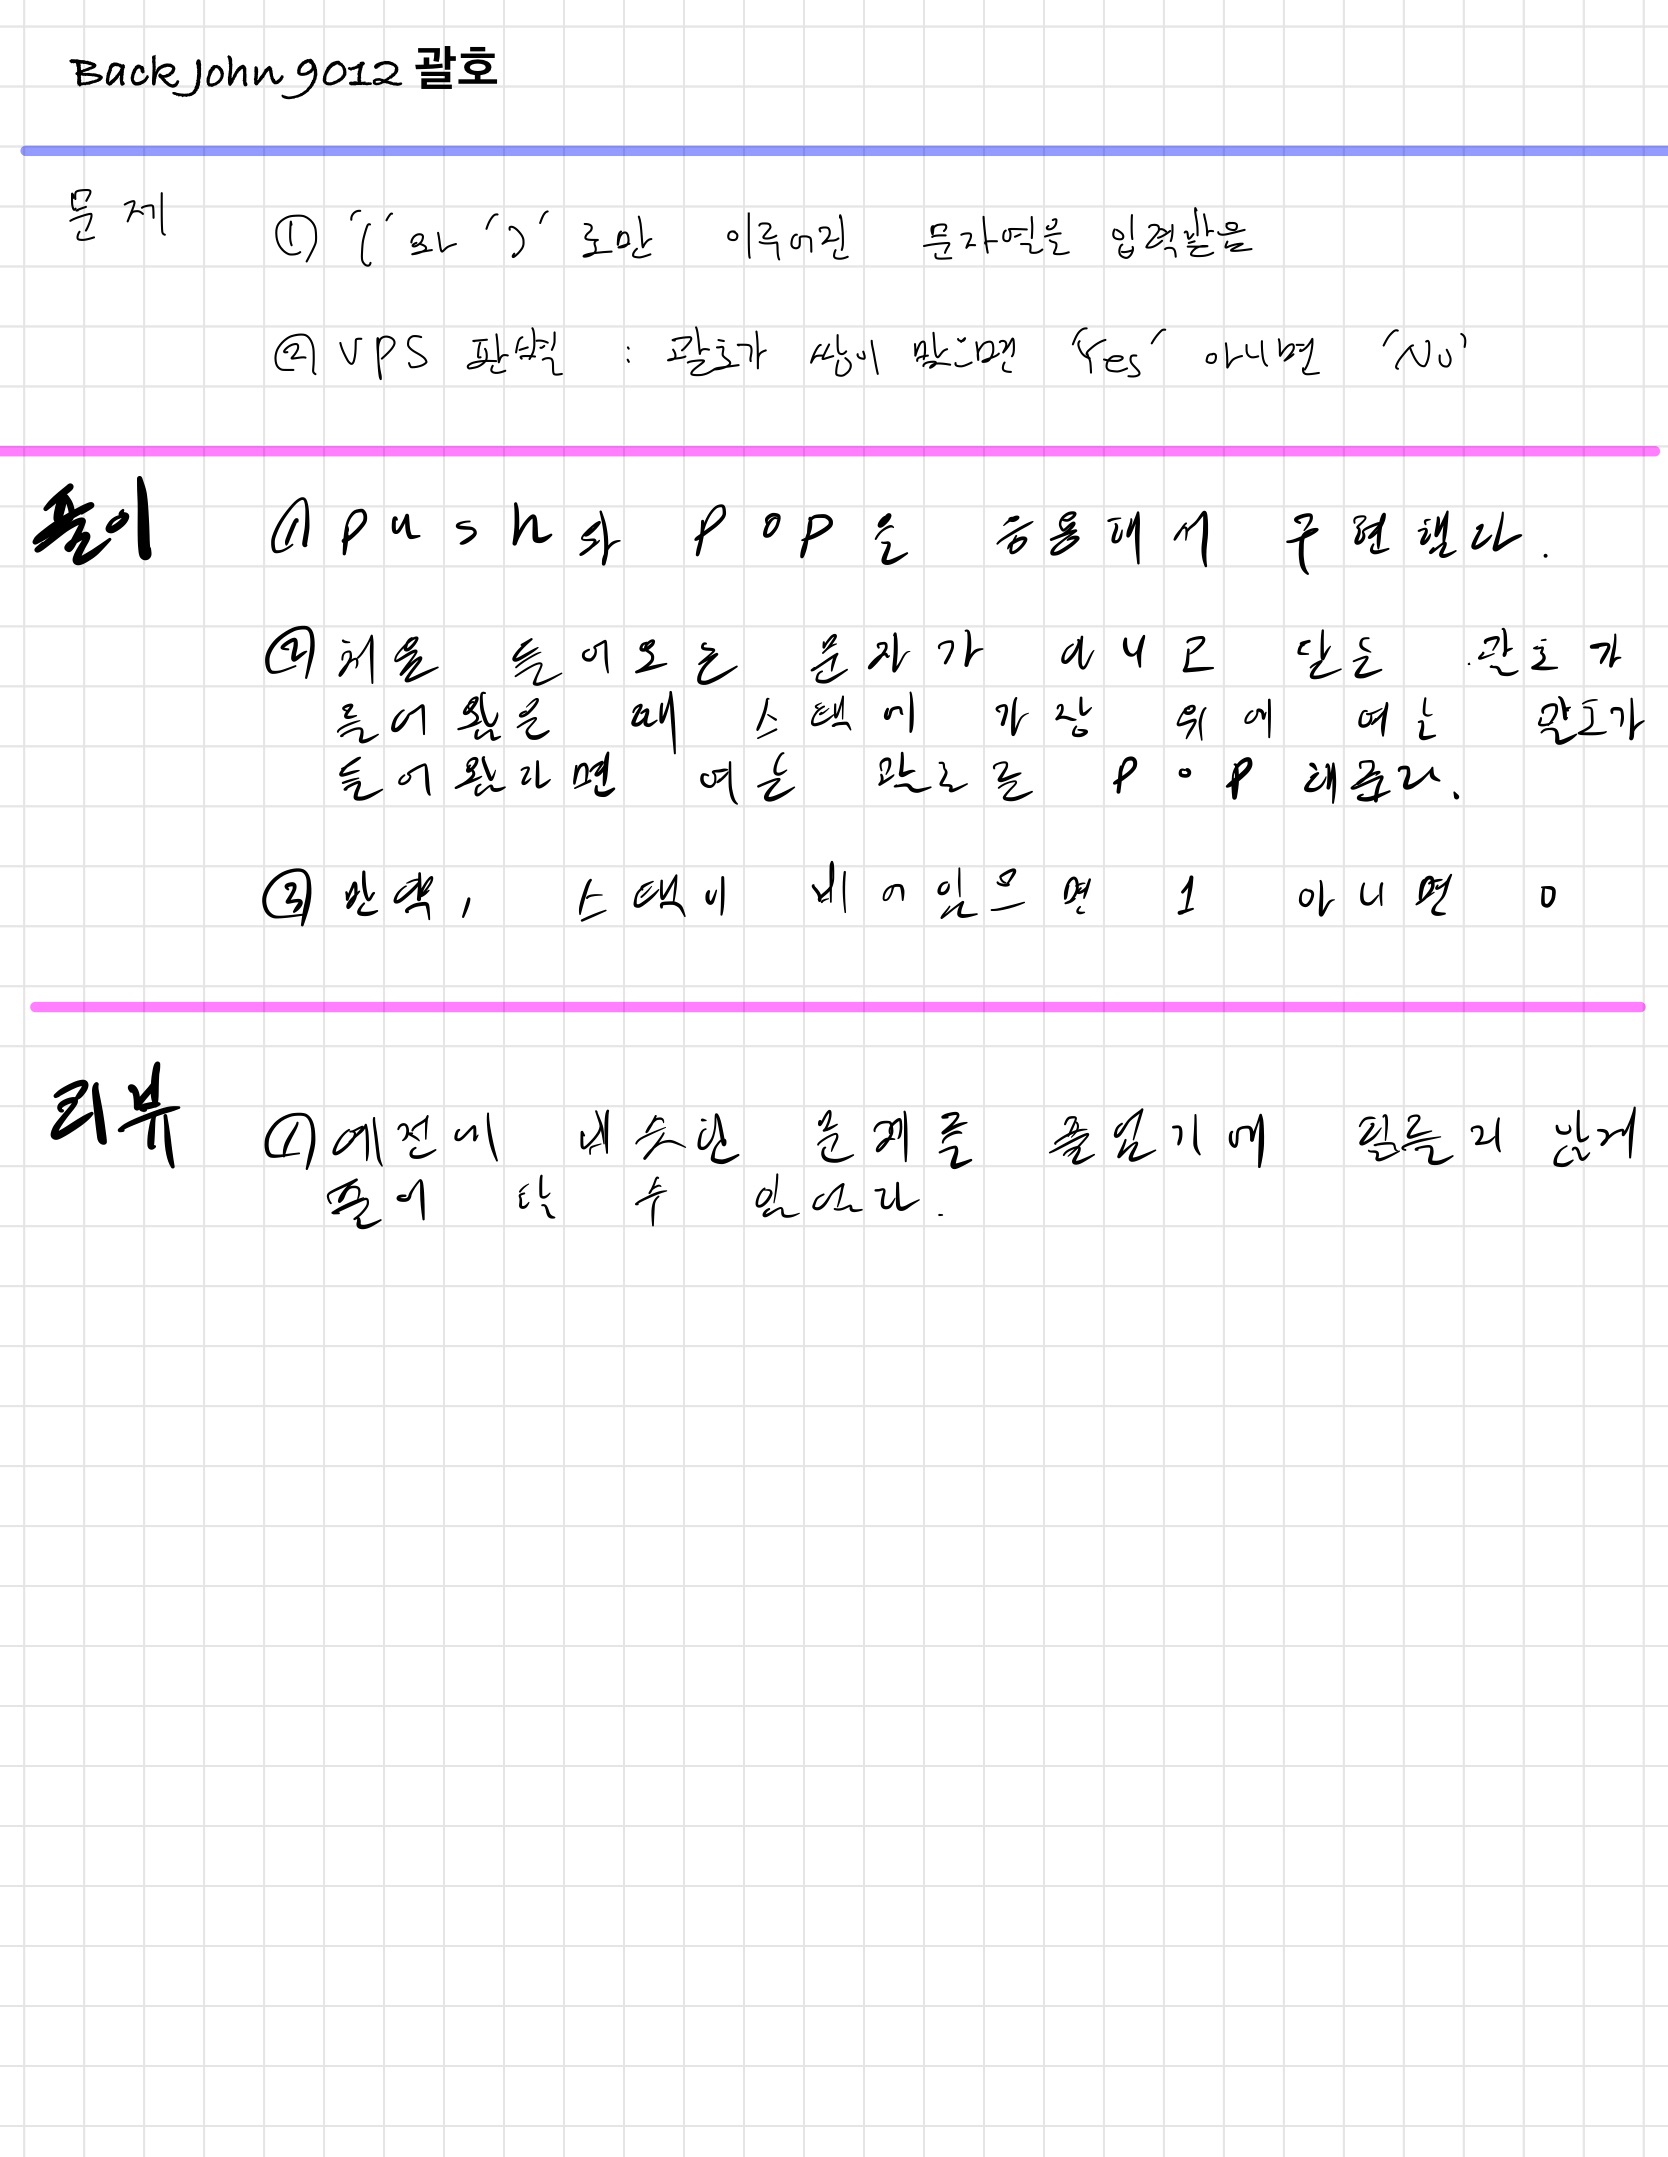 BackJohn 9012 괄호
문제
① '(' 와 ')' 로만 이루어진 문자열을 입력받음
② VPS 판별 : 괄호가 쌍이 맞으면 'Yes' 아니면 'No'
풀이
① push와 pop을 응용해서 구현했다.
② 처음 들어오는 문자가 아니고 닫는 괄호가
들어왔을 때 스택에 가장 위에 여는 괄호가
들어왔다면 여는 괄호를 pop 해준다.
③ 만약, 스택이 비어있으면 1 아니면 0
리뷰
① 예전에 비슷한 문제를 풀었기에 힘들지 않게
풀어 낼 수 있었다.